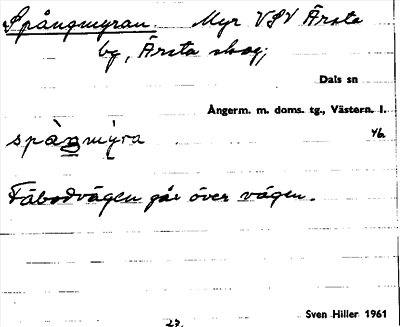 Spångmyran. Myr VSV Ärsta
by, Ärsta skog;
Dals sn
Ångerm. m. doms. tg., Västern. l.
spàngmýra
46.
Fäbodvägen går över vägen.
Sven Hiller 1961
27.